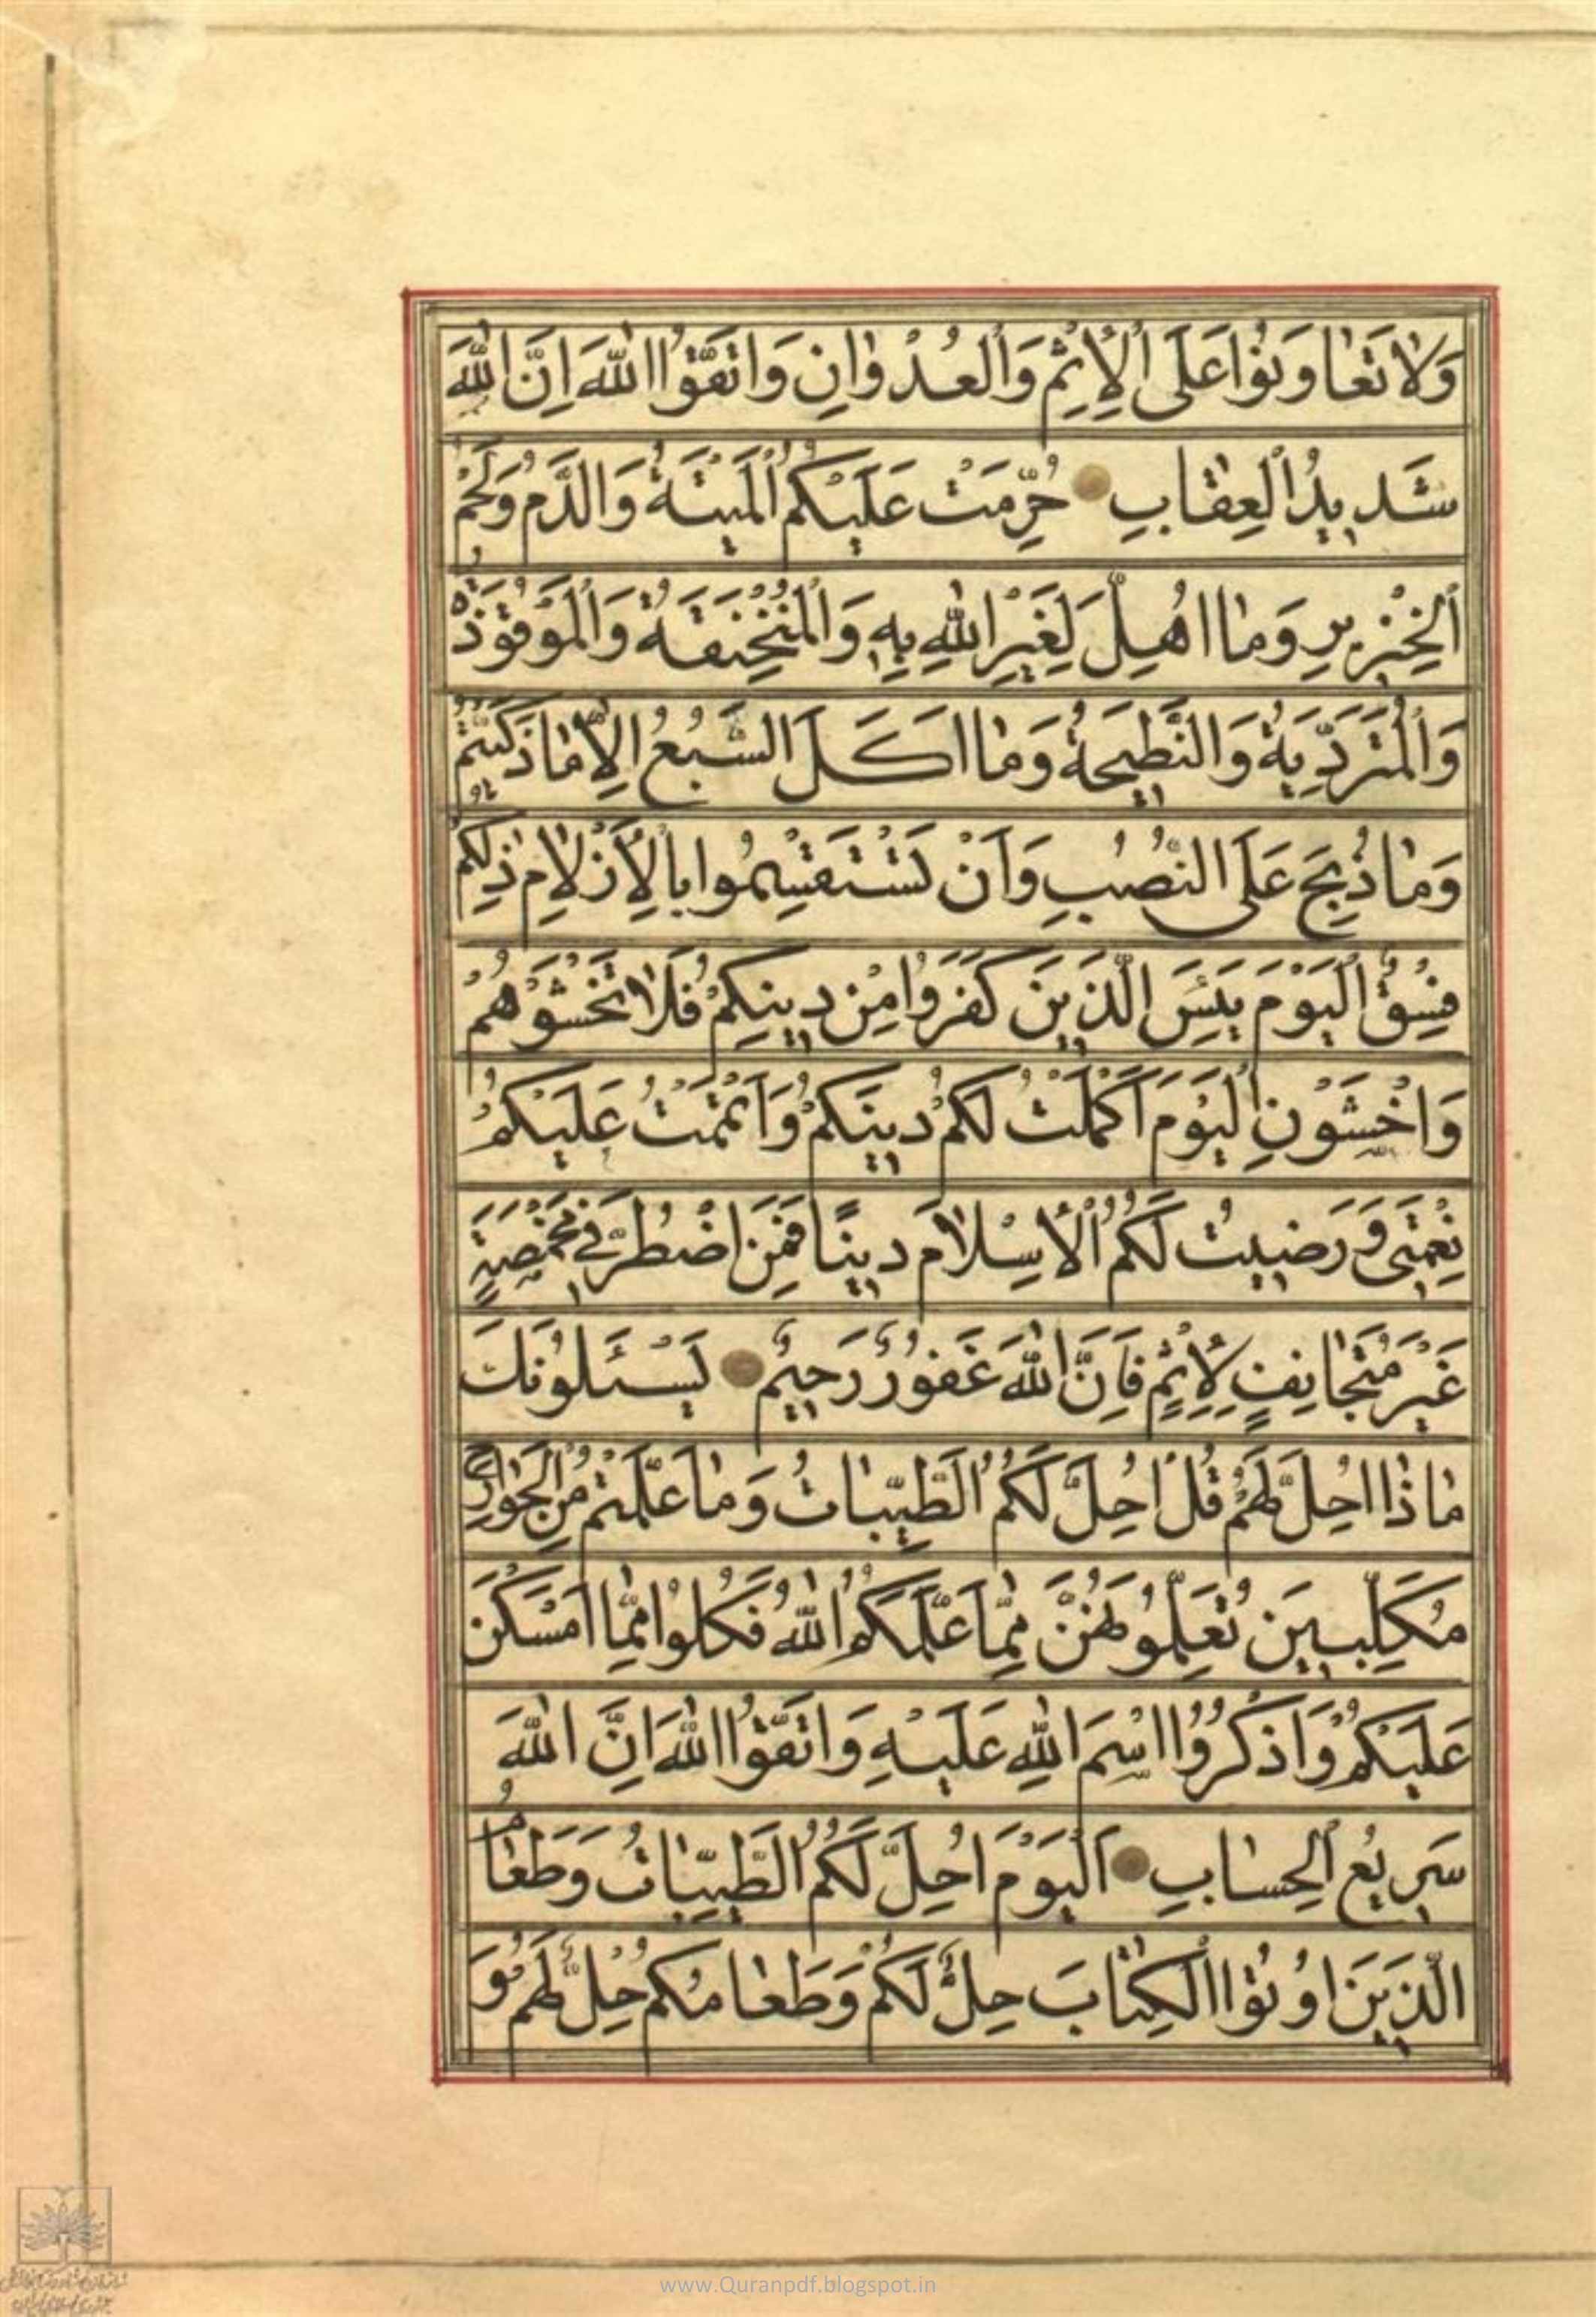 وَلاٰ تَعٰاوَنُوْا عَلَى الْاِثْمِ وَالْعُدْوٰانِ وَاتَّقُوا اللّٰهَ اِنَّ اللّٰهَ
شَدِيدُ الْعِقٰابِ حُرِّمَتْ عَلَيْكُمُ الْمَيْتَةُ وَالدَّمُ وَلَحْمُ
الْخِنْزِيرِ وَمٰا اُهِلَّ لِغَيْرِ اللّٰهِ بِهِ وَالْمُنْخَنِقَةُ وَالْمَوْقُوذَةُ
وَالْمُتَرَدِّيَةُ وَالنَّطِيحَةُ وَمٰا اَكَلَ السَّبُعُ اِلّٰا مٰا ذَكَّيْتُمْ
وَمٰا ذُبِحَ عَلَى النُّصُبِ وَاَنْ تَسْتَقْسِمُوا بِالْاَزْلٰامِ ذٰلِكُمْ
فِسْقٌ الْيَوْمَ يَئِسَ الَّذِينَ كَفَرُوا مِنْ دِينِكُمْ فَلٰا تَخْشَوْهُمْ
وَاخْشَوْنِ الْيَوْمَ اَكْمَلْتُ لَكُمْ دِينَكُمْ وَاَتْمَمْتُ عَلَيْكُمْ
نِعْمَتِى وَرَضِيتُ لَكُمُ الْاِسْلٰامَ دِينًا فَمَنِ اضْطُرَّ فِى مَخْمَصَةٍ
غَيْرَ مُتَجٰانِفٍ لِاِثْمٍ فَاِنَّ اللّٰهَ غَفُورٌ رَحِيمٌ يَسْئَلُونَكَ
مٰاذٰا اُحِلَّ لَهُمْ قُلْ اُحِلَّ لَكُمُ الطَّيِّبٰاتُ وَمٰا عَلَّمْتُمْ مِنَ الْجَوٰارِحِ
مُكَلِّبِينَ تُعَلِّمُونَهُنَّ مِمّٰا عَلَّمَكُمُ اللّٰهُ فَكُلُوا مِمّٰا اَمْسَكْنَ
عَلَيْكُمْ وَاذْكُرُوا اسْمَ اللّٰهِ عَلَيْهِ وَاتَّقُوا اللّٰهَ اِنَّ اللّٰهَ
سَرِيعُ الْحِسٰابِ اَلْيَوْمَ اُحِلَّ لَكُمُ الطَّيِّبٰاتُ وَطَعٰامُ
الَّذِينَ اُوتُوا الْكِتٰابَ حِلٌّ لَكُمْ وَطَعٰامُكُمْ حِلٌّ لَهُمْ وَ
www.Quranpdf.blogspot.in